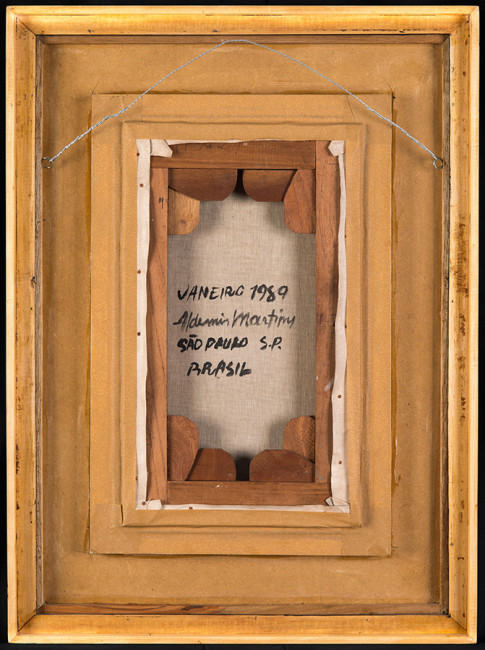 JANEIRO 1989
Aldemir Martins
SÃO PAULO S.P.
BRASIL